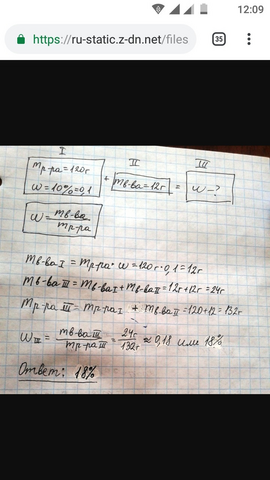 12:09
https://ru-static.z-dn.net/files
35
I II III
mр-ра = 120г
w = 10% = 0,1
+ mв-ва = 12г = w - ?
w = mв-ва / mр-ра
mв-ва I = mр-ра · w = 120г · 0,1 = 12г
mв-ва III = mв-ва I + mв-ва II = 12г + 12г = 24г
mр-ра III = mр-ра I + mв-ва II = 120 + 12 = 132г
w III = mв-ва III / mр-ра III = 24г / 132г ≈ 0,18 или 18%
Ответ: 18%